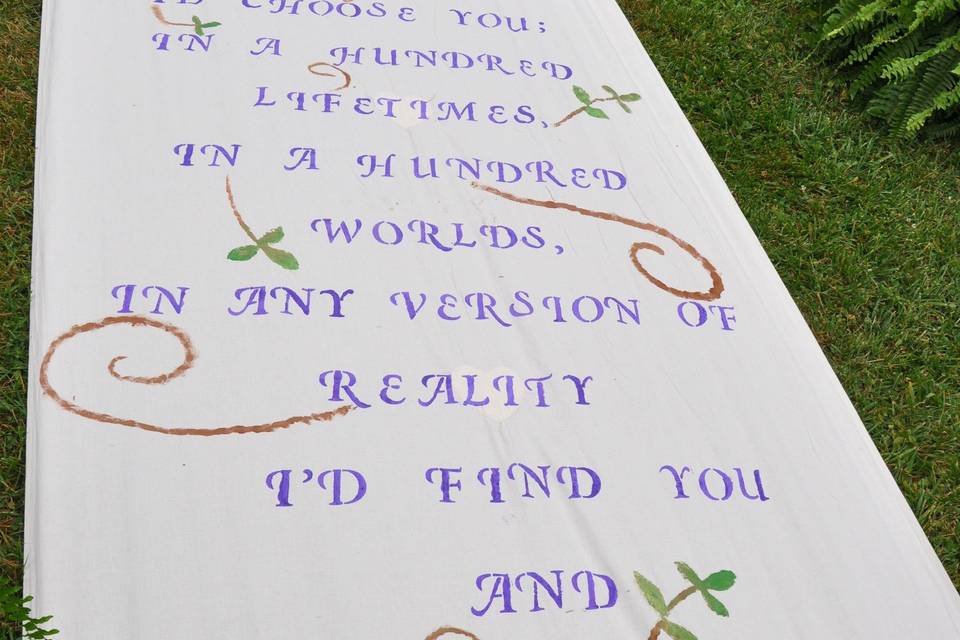 I'D CHOOSE YOU;
IN A HUNDRED
LIFETIMES,
IN A HUNDRED
WORLDS,
IN ANY VERSION OF
REALITY
I'D FIND YOU
AND